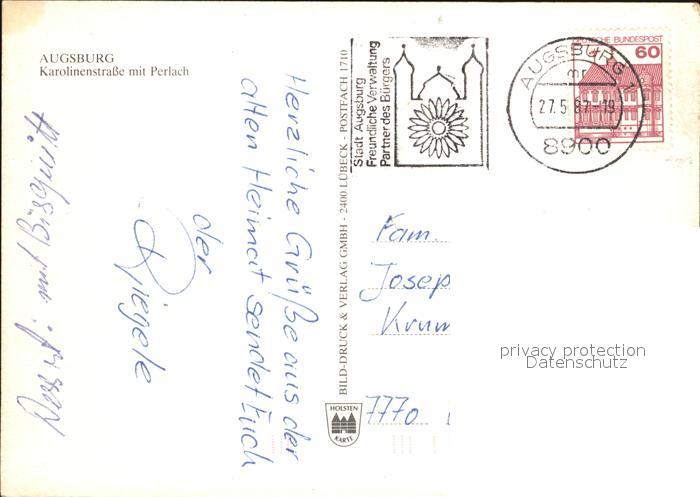 AUGSBURG
Karolinenstraße mit Perlach
Herzliche Grüße aus der
alten Heimat sendet Euch
der
Riegele
mit
BILD-DRUCK & VERLAG GMBH - 2400 LÜBECK - POSTFACH 1710
HOLSTEN
KARTE
Stadt Augsburg
Freundliche Verwaltung
Partner des Bürgers
AUGSBURG 1
mr
27.5.87.-19
8900
DEUTSCHE BUNDESPOST
60
Fam.
Josep
Krum
7770
privacy protection
Datenschutz